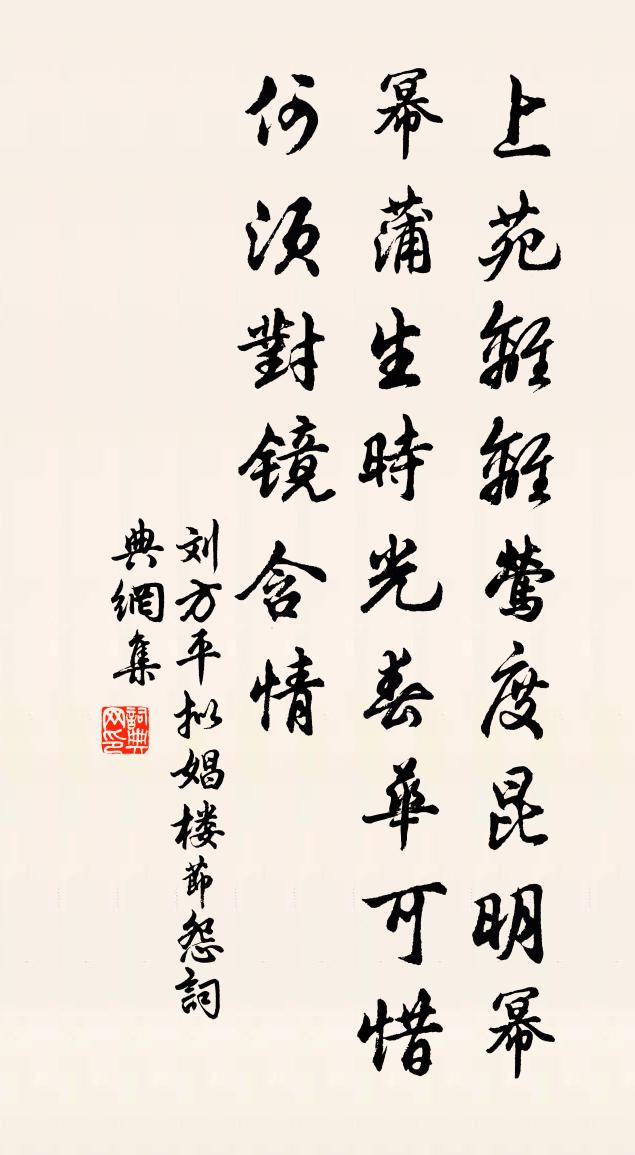 上苑離離鶯度昆明冪
冪蒲生時光春華可惜
何須對鏡含情
刘方平拟娼楼節怨詞
典網集
詞典
网印